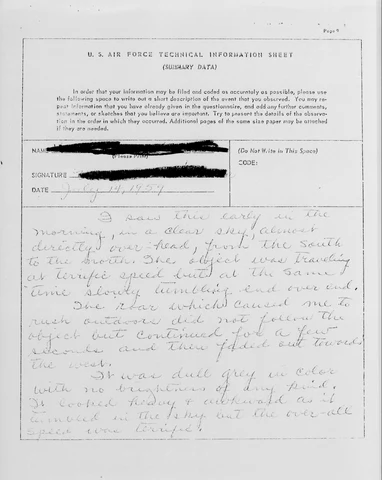 Page 9
U. S. AIR FORCE TECHNICAL INFORMATION SHEET
(SUMMARY DATA)
In order that your information may be filed and coded as accurately as possible, please use
the following space to write out a short description of the event that you observed. You may re-
peat information that you have already given in the questionnaire, and add any further comments,
statements, or sketches that you believe are important. Try to present the details of the observa-
tion in the order in which they occurred. Additional pages of the same size paper may be attached
if they are needed.
NAME
(Please Print)
(Do Not Write in This Space)
CODE:
SIGNATURE
DATE July 14, 1959
I saw this early in the
morning, in a clear sky almost
directly over-head, from the South
to the north. The object was traveling
at terrific speed but at the same
time slowly tumbling end over end.
The roar which caused me to
rush outdoors did not follow the
object but continued for a few
seconds and then faded out toward
the west.
It was dull grey in color
with no brightness of any kind.
It looked heavy & awkward as it
tumbled in the sky but the over-all
speed was terrific.